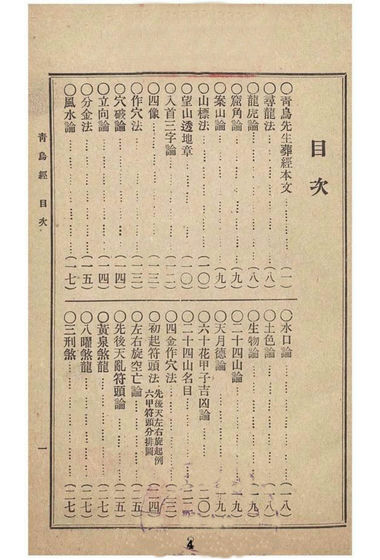 目次
○青鳥先生葬經本文……(一)
○尋龍法……(八)
○龍虎論……(八)
○窟角論……(九)
○案山論……(九)
○山標法……(一〇)
○望山透地章……(一〇)
○入首三字論……(一二)
○四像……(一二)
○作穴法……(一三)
○穴破論……(一四)
○立向論……(一四)
○分金法……(一五)
○風水論……(一七)
○水口論……(一八)
○土色論……(一八)
○生物論……(一九)
○二十四山論……(一九)
○天月德論……(一九)
○六十花甲子吉凶論……(二〇)
○二十四山名目……(二二)
○四金作穴法……(二三)
○初起符頭法 先後天左右旋起例 六甲符頭分排圖(二四)
○左右旋空亡論……(二五)
○先後天亂符頭論……(二五)
○黃泉煞龍……(二七)
○八曜煞龍……(二七)
○三刑煞……(二七)
青鳥經 目次 一